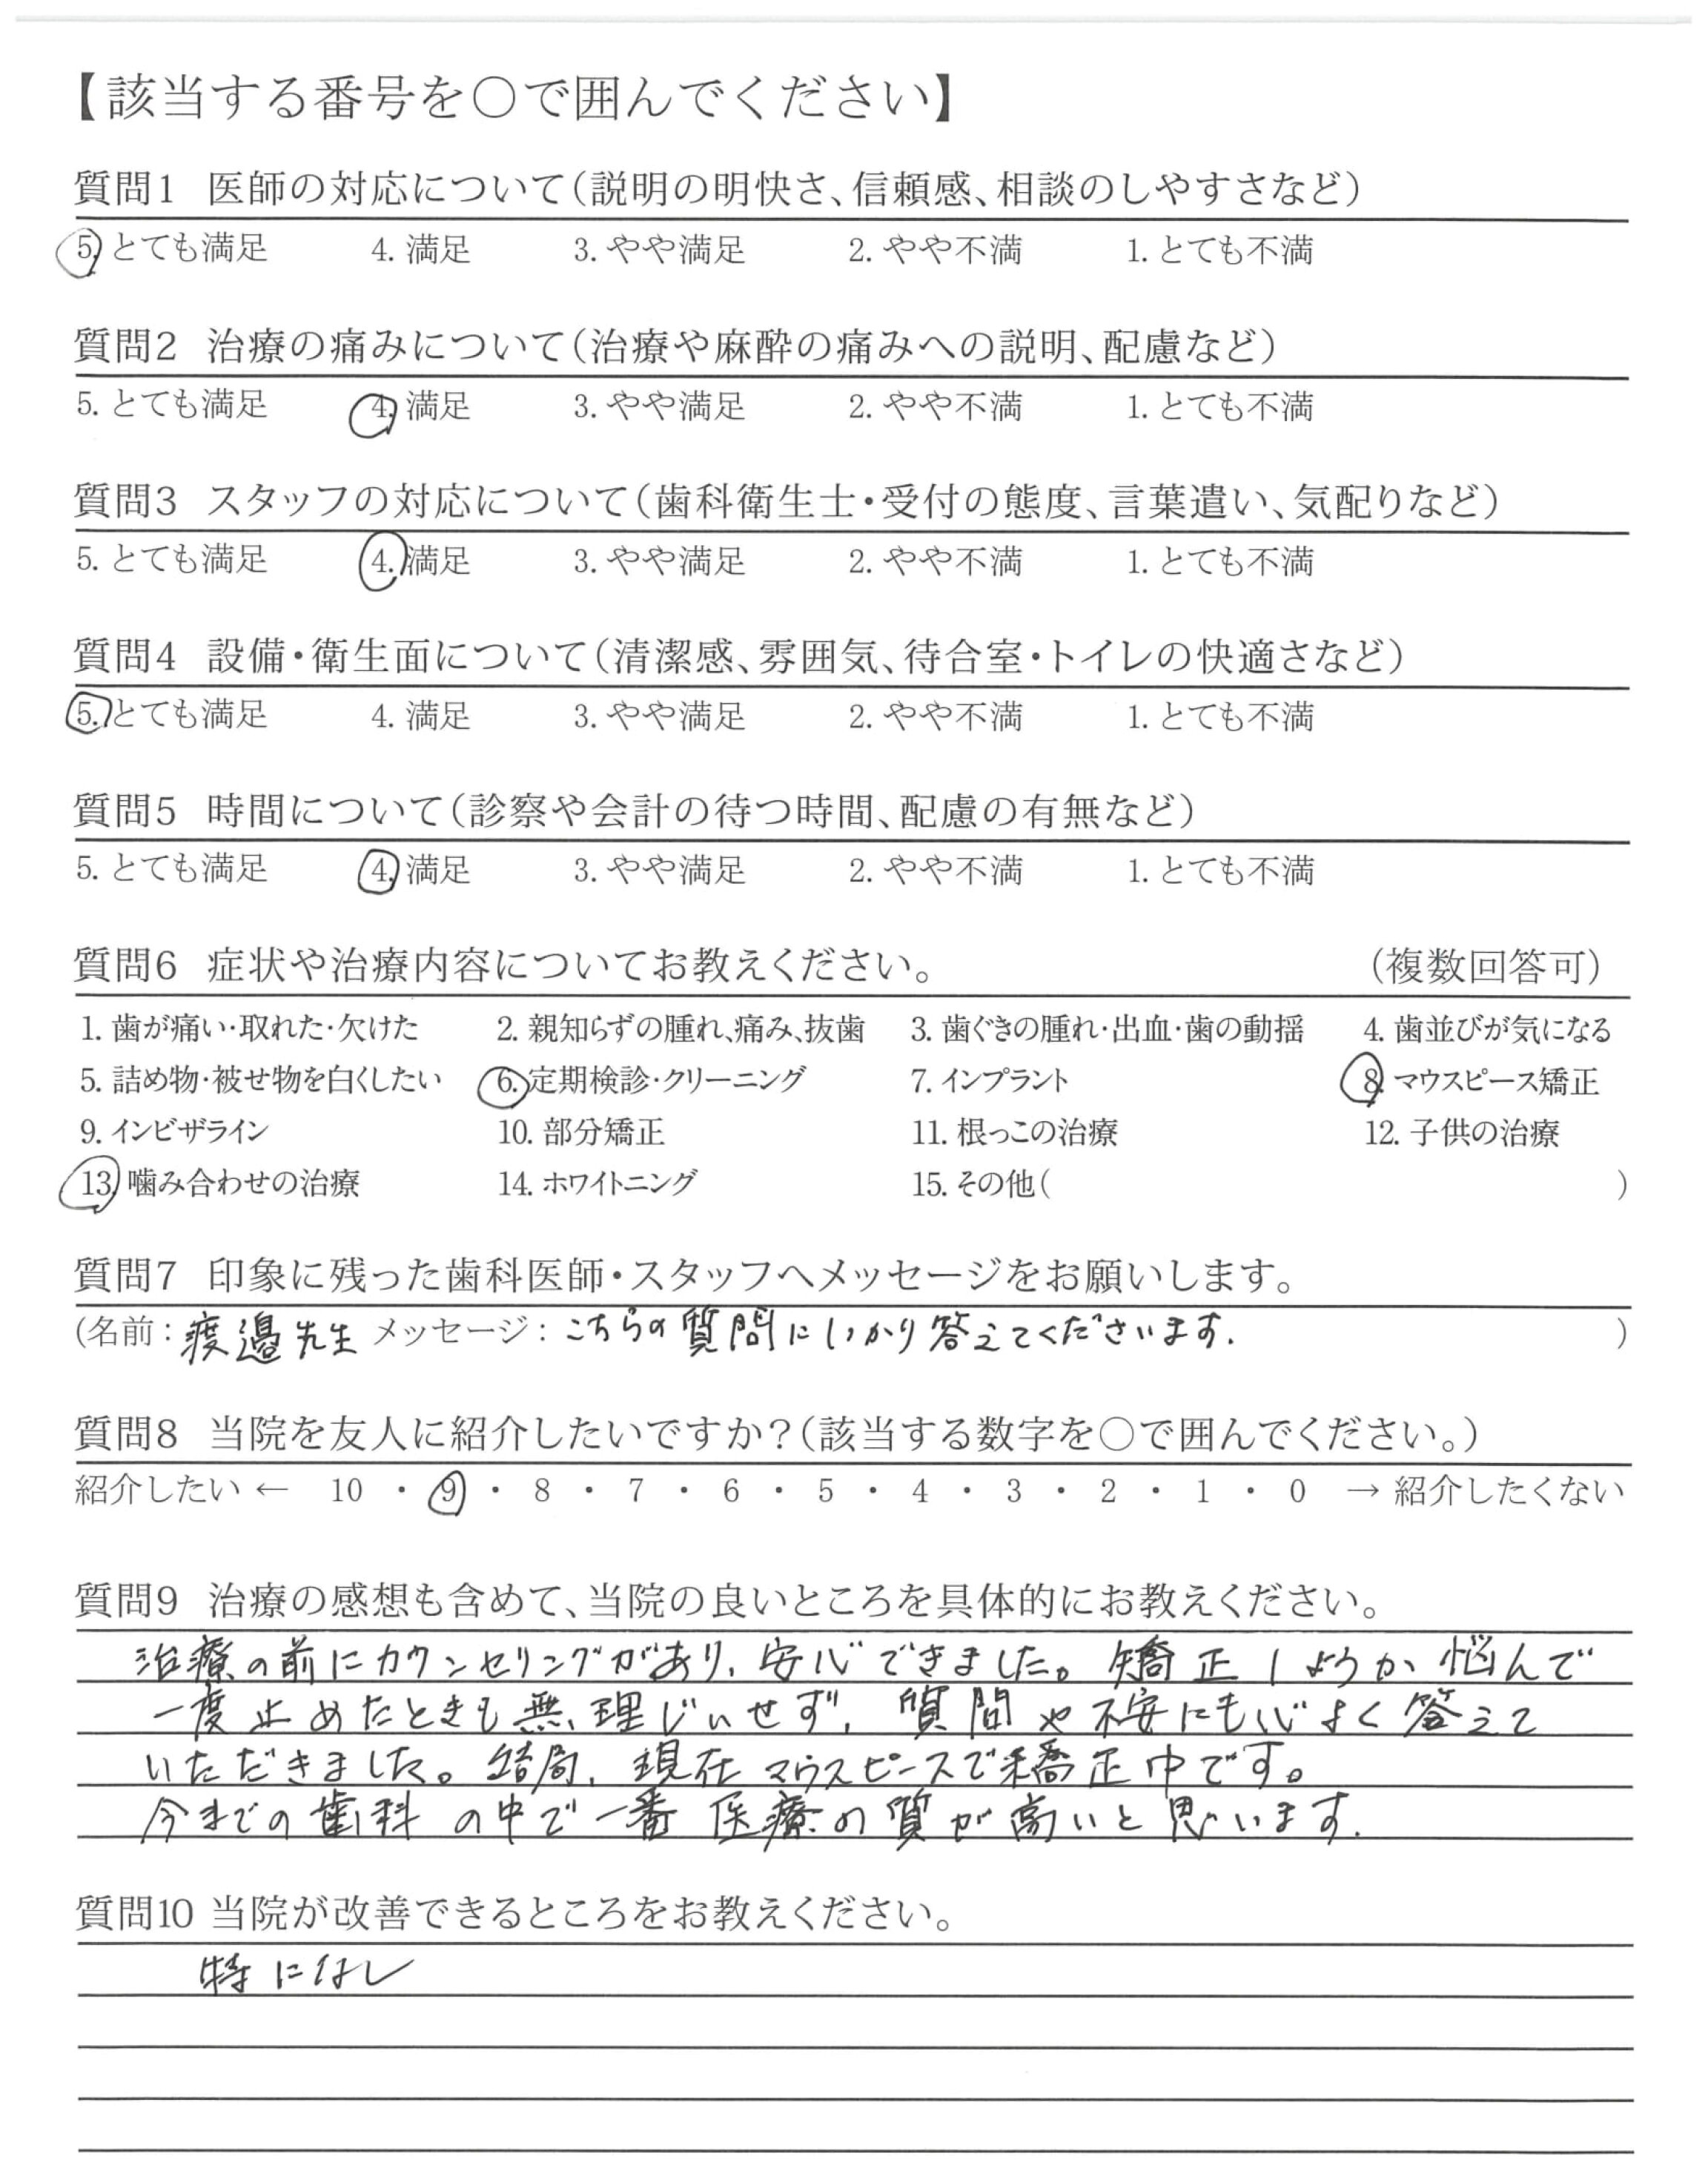 【該当する番号を○で囲んでください】
質問1 医師の対応について(説明の明快さ、信頼感、相談のしやすさなど)
5. とても満足 4. 満足 3. やや満足 2. やや不満 1. とても不満
質問2 治療の痛みについて(治療や麻酔の痛みへの説明、配慮など)
5. とても満足 4. 満足 3. やや満足 2. やや不満 1. とても不満
質問3 スタッフの対応について(歯科衛生士・受付の態度、言葉遣い、気配りなど)
5. とても満足 4. 満足 3. やや満足 2. やや不満 1. とても不満
質問4 設備・衛生面について(清潔感、雰囲気、待合室・トイレの快適さなど)
5. とても満足 4. 満足 3. やや満足 2. やや不満 1. とても不満
質問5 時間について(診察や会計の待つ時間、配慮の有無など)
5. とても満足 4. 満足 3. やや満足 2. やや不満 1. とても不満
質問6 症状や治療内容についてお教えください。 (複数回答可)
1. 歯が痛い・取れた・欠けた 2. 親知らずの腫れ、痛み、抜歯 3. 歯ぐきの腫れ・出血・歯の動揺 4. 歯並びが気になる
5. 詰め物・被せ物を白くしたい 6. 定期検診・クリーニング 7. インプラント 8. マウスピース矯正
9. インビザライン 10. 部分矯正 11. 根っこの治療 12. 子供の治療
13. 噛み合わせの治療 14. ホワイトニング 15. その他( )
質問7 印象に残った歯科医師・スタッフへメッセージをお願いします。
(名前:渡邉先生 メッセージ:こちらの質問にしっかり答えてくださいます. )
質問8 当院を友人に紹介したいですか?(該当する数字を○で囲んでください。)
紹介したい ← 10 ・ 9 ・ 8 ・ 7 ・ 6 ・ 5 ・ 4 ・ 3 ・ 2 ・ 1 ・ 0 → 紹介したくない
質問9 治療の感想も含めて、当院の良いところを具体的にお教えください。
治療の前にカウンセリングがあり、安心できました。矯正しようか悩んで
一度止めたときも無理じいせず、質問や不安にも心よく答えて
いただきました。結局、現在マウスピースで矯正中です。
今までの歯科の中で一番医療の質が高いと思います.
質問10 当院が改善できるところをお教えください。
特になし